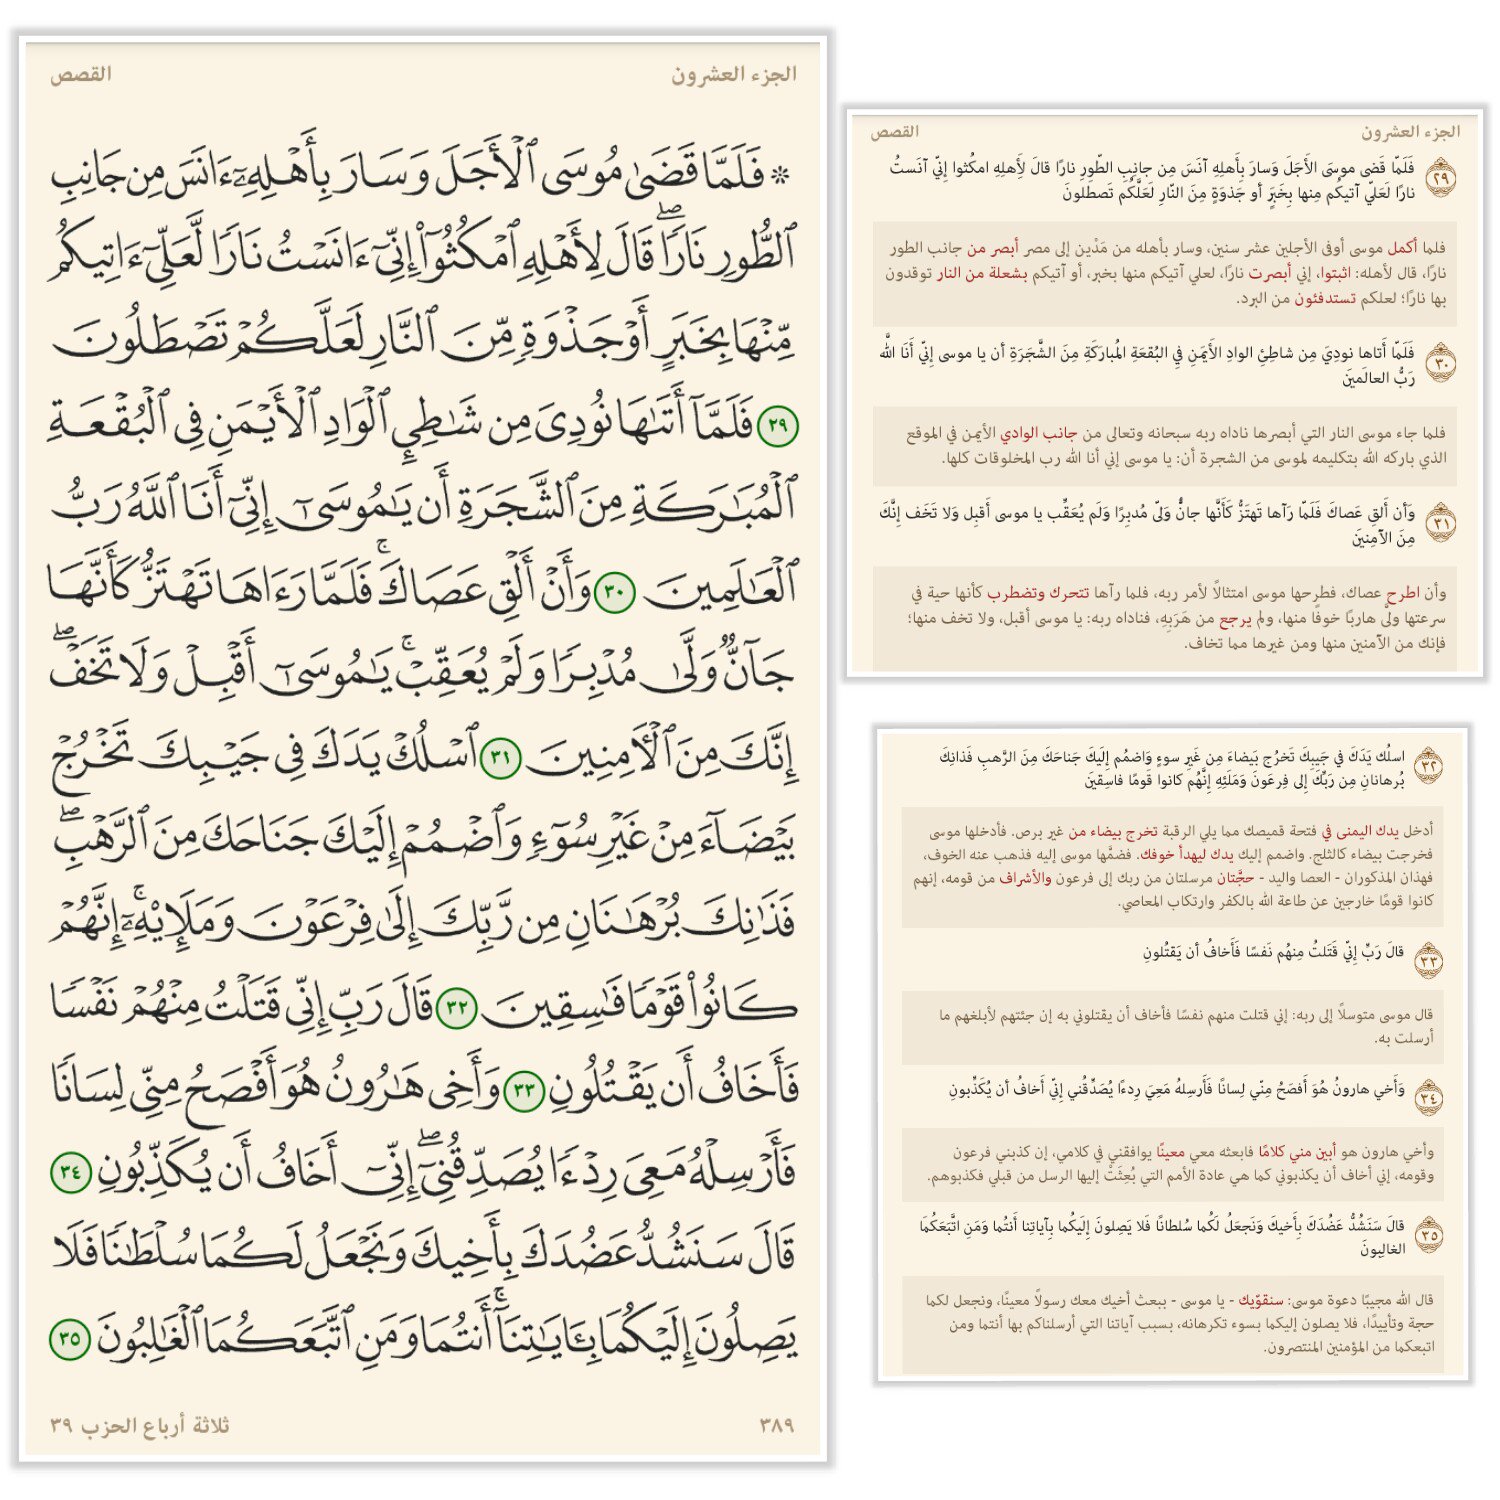 الجزء العشرون
القصص
۞ فَلَمَّا قَضَىٰ مُوسَى ٱلْأَجَلَ وَسَارَ بِأَهْلِهِۦٓ ءَانَسَ مِن جَانِبِ
ٱلطُّورِ نَارًاۖ قَالَ لِأَهْلِهِ ٱمْكُثُوٓا۟ إِنِّىٓ ءَانَسْتُ نَارًا لَّعَلِّىٓ ءَاتِيكُم
مِّنْهَا بِخَبَرٍ أَوْ جَذْوَةٍ مِّنَ ٱلنَّارِ لَعَلَّكُمْ تَصْطَلُونَ
٢٩ فَلَمَّآ أَتَىٰهَا نُودِىَ مِن شَٰطِئِ ٱلْوَادِ ٱلْأَيْمَنِ فِى ٱلْبُقْعَةِ
ٱلْمُبَٰرَكَةِ مِنَ ٱلشَّجَرَةِ أَن يَٰمُوسَىٰٓ إِنِّىٓ أَنَا ٱللَّهُ رَبُّ
ٱلْعَٰلَمِينَ ٣٠ وَأَنْ أَلْقِ عَصَاكَۚ فَلَمَّا رَءَاهَا تَهْتَزُّ كَأَنَّهَا
جَآنٌّ وَلَّىٰ مُدْبِرًا وَلَمْ يُعَقِّبْۚ يَٰمُوسَىٰٓ أَقْبِلْ وَلَا تَخَفْۖ
إِنَّكَ مِنَ ٱلْءَامِنِينَ ٣١ ٱسْلُكْ يَدَكَ فِى جَيْبِكَ تَخْرُجْ
بَيْضَآءَ مِنْ غَيْرِ سُوٓءٍ وَٱضْمُمْ إِلَيْكَ جَنَاحَكَ مِنَ ٱلرَّهْبِۖ
فَذَٰنِكَ بُرْهَٰنَانِ مِن رَّبِّكَ إِلَىٰ فِرْعَوْنَ وَمَلَإِي۟هِۦٓۚ إِنَّهُمْ
كَانُوا۟ قَوْمًا فَٰسِقِينَ ٣٢ قَالَ رَبِّ إِنِّى قَتَلْتُ مِنْهُمْ نَفْسًا
فَأَخَافُ أَن يَقْتُلُونِ ٣٣ وَأَخِى هَٰرُونُ هُوَ أَفْصَحُ مِنِّى لِسَانًا
فَأَرْسِلْهُ مَعِىَ رِدْءًا يُصَدِّقُنِىٓۖ إِنِّىٓ أَخَافُ أَن يُكَذِّبُونِ ٣٤
قَالَ سَنَشُدُّ عَضُدَكَ بِأَخِيكَ وَنَجْعَلُ لَكُمَا سُلْطَٰنًا فَلَا
يَصِلُونَ إِلَيْكُمَا بِـَٔايَٰتِنَآۚ أَنتُمَا وَمَنِ ٱتَّبَعَكُمَا ٱلْغَٰلِبُونَ ٣٥
٣٨٩
ثلاثة أرباع الحزب ٣٩
الجزء العشرون
القصص
٢٩ فَلَمّا قَضى موسَى الأَجَلَ وَسارَ بِأَهلِهِ آنَسَ مِن جانِبِ الطّورِ نارًا قالَ لِأَهلِهِ امكُثوا إِنّي آنَستُ
نارًا لَعَلّي آتيكُم مِنها بِخَبَرٍ أَو جَذوَةٍ مِنَ النّارِ لَعَلَّكُم تَصطَلونَ
فلما أكمل موسى أوفى الأجلين عشر سنين، وسار بأهله من مَدْين إلى مصر أبصر من جانب الطور
نارًا، قال لأهله: اثبتوا، إني أبصرت نارًا، لعلي آتيكم منها بخبر، أو آتيكم بشعلة من النار توقدون
بها نارًا؛ لعلكم تستدفئون من البرد.
٣٠ فَلَمّا أَتاها نودِيَ مِن شاطِئِ الوادِ الأَيمَنِ فِي البُقعَةِ المُبارَكَةِ مِنَ الشَّجَرَةِ أَن يا موسى إِنّي أَنَا اللَّه
رَبُّ العالَمينَ
فلما جاء موسى النار التي أبصرها ناداه ربه سبحانه وتعالى من جانب الوادي الأيمن في الموقع
الذي باركه الله بتكليمه لموسى من الشجرة أن: يا موسى إني أنا الله رب المخلوقات كلها.
٣١ وَأَن أَلقِ عَصاكَ فَلَمّا رَآها تَهتَزُّ كَأَنَّها جانٌّ وَلّى مُدبِرًا وَلَم يُعَقِّب يا موسى أَقبِل وَلا تَخَف إِنَّكَ
مِنَ الآمِنينَ
وأن اطرح عصاك، فطرحها موسى امتثالًا لأمر ربه، فلما رآها تتحرك وتضطرب كأنها حية في
سرعتها ولّى هاربًا خوفًا منها، ولم يرجع من هَرَبِهِ، فناداه ربه: يا موسى أقبل، ولا تخف منها؛
فإنك من الآمنين منها ومن غيرها مما تخاف.
٣٢ اسلُك يَدَكَ في جَيبِكَ تَخرُج بَيضاءَ مِن غَيرِ سوءٍ وَاضمُم إِلَيكَ جَناحَكَ مِنَ الرَّهبِ فَذانِكَ
بُرهانانِ مِن رَبِّكَ إِلى فِرعَونَ وَمَلَئِهِ إِنَّهُم كانوا قَومًا فاسِقينَ
أدخل يدك اليمنى في فتحة قميصك مما يلي الرقبة تخرج بيضاء من غير برص. فأدخلها موسى
فخرجت بيضاء كالثلج. واضمم إليك يدك ليهدأ خوفك. فضمَّها موسى إليه فذهب عنه الخوف،
فهذان المذكوران - العصا واليد - حجَّتان مرسلتان من ربك إلى فرعون والأشراف من قومه، إنهم
كانوا قومًا خارجين عن طاعة الله بالكفر وارتكاب المعاصي.
٣٣ قالَ رَبِّ إِنّي قَتَلتُ مِنهُم نَفسًا فَأَخافُ أَن يَقتُلونِ
قال موسى متوسلًا إلى ربه: إني قتلت منهم نفسًا فأخاف أن يقتلوني به إن جئتهم لأبلغهم ما
أرسلت به.
٣٤ وَأَخي هارونُ هُوَ أَفصَحُ مِنّي لِسانًا فَأَرسِلهُ مَعِيَ رِدءًا يُصَدِّقُني إِنّي أَخافُ أَن يُكَذِّبونِ
وأخي هارون هو أبين مني كلامًا فابعثه معي معينًا يوافقني في كلامي، إن كذبني فرعون
وقومه، إني أخاف أن يكذبوني كما هي عادة الأمم التي بُعِثَتْ إليها الرسل من قبلي فكذبوهم.
٣٥ قالَ سَنَشُدُّ عَضُدَكَ بِأَخيكَ وَنَجعَلُ لَكُما سُلطانًا فَلا يَصِلونَ إِلَيكُما بِآياتِنا أَنتُما وَمَنِ اتَّبَعَكُمَا
الغالِبونَ
قال الله مجيبًا دعوة موسى: سنقوّيك - يا موسى - ببعث أخيك معك رسولًا معينًا، ونجعل لكما
حجة وتأييدًا، فلا يصلون إليكما بسوء تكرهانه، بسبب آياتنا التي أرسلناكم بها أنتما ومن
اتبعكما من المؤمنين المنتصرون.